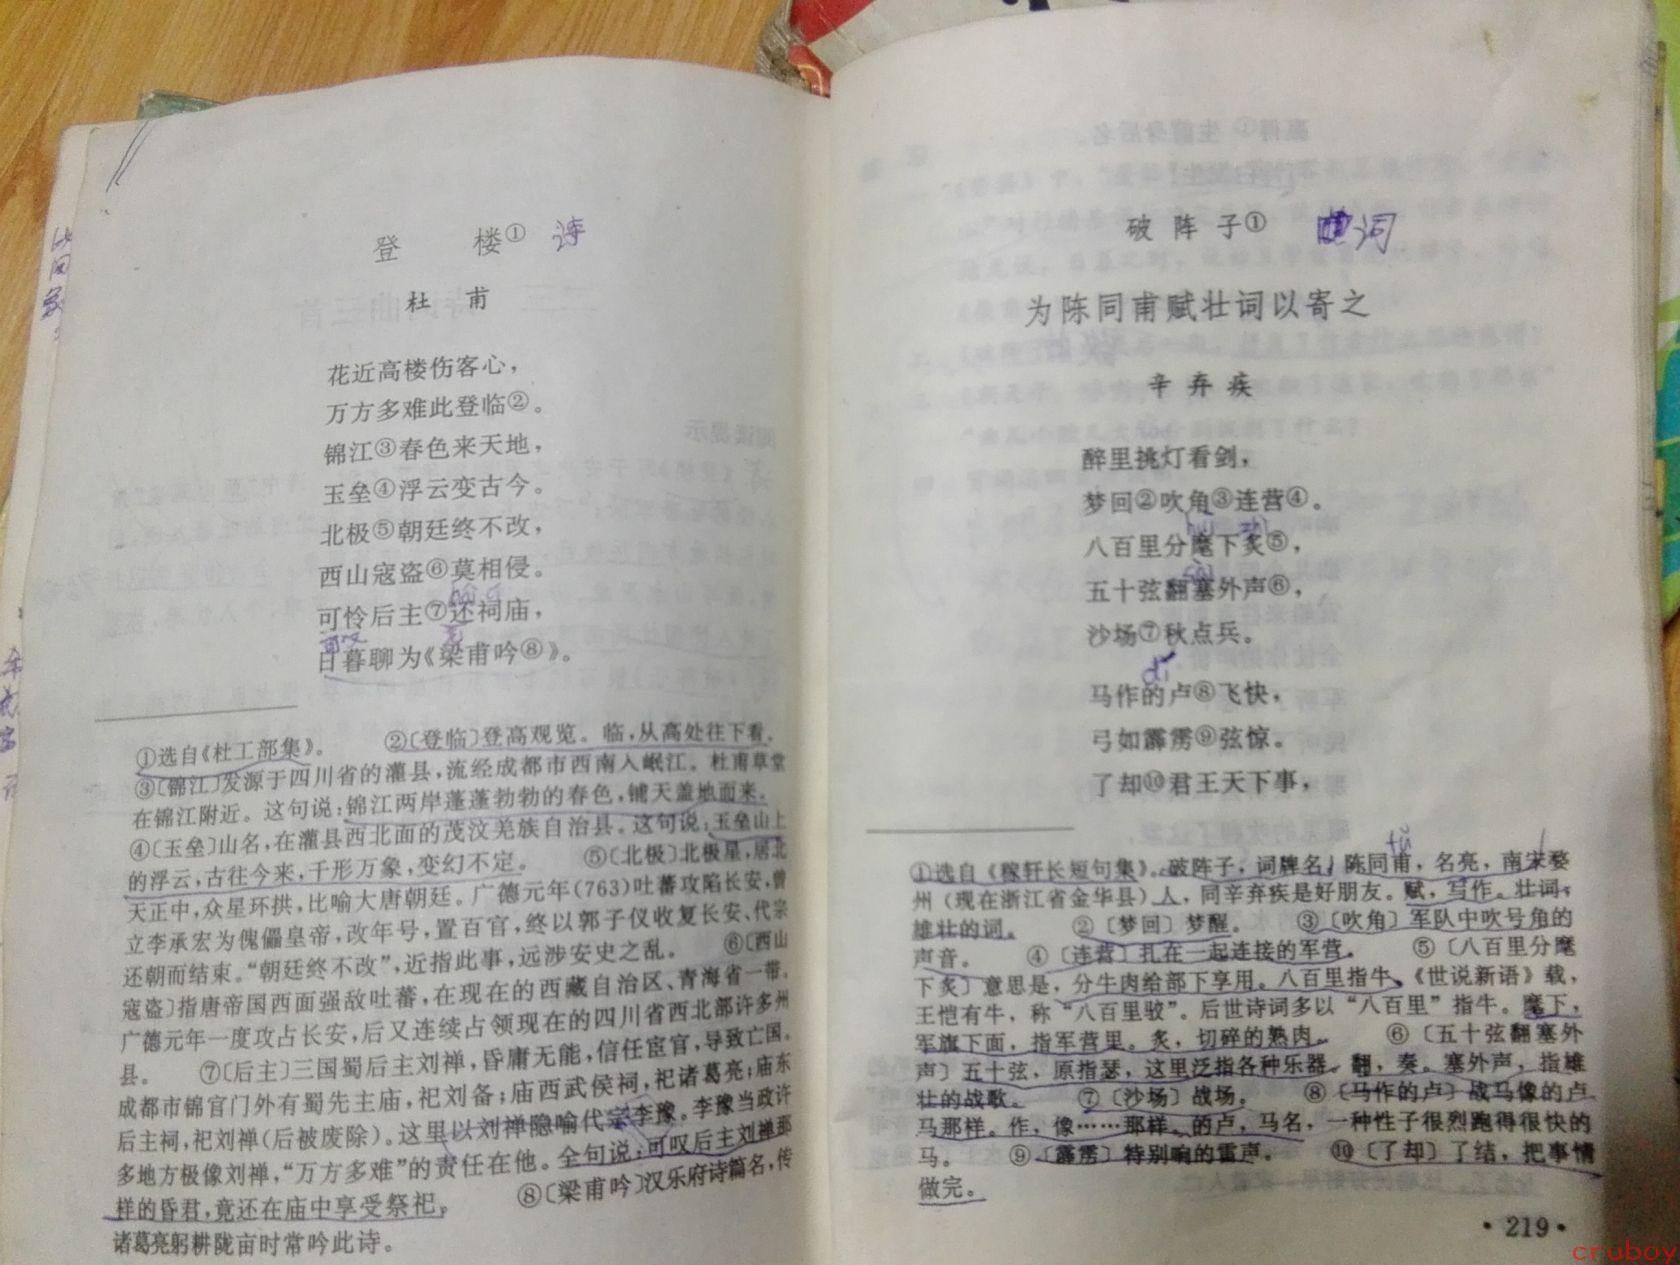 登 楼① 诗
杜 甫
花近高楼伤客心，
万方多难此登临②。
锦江③春色来天地，
玉垒④浮云变古今。
北极⑤朝廷终不改，
西山寇盗⑥莫相侵。
可怜后主⑦还祠庙，
日暮聊为《梁甫吟⑧》。
①选自《杜工部集》。 ②〔登临〕登高观览。临，从高处往下看。
③〔锦江〕发源于四川省的灌县，流经成都市西南入岷江。杜甫草堂
在锦江附近。这句说：锦江两岸蓬蓬勃勃的春色，铺天盖地而来。
④〔玉垒〕山名，在灌县西北面的茂汶羌族自治县。这句说：玉垒山上
的浮云，古往今来，千形万象，变幻不定。 ⑤〔北极〕北极星，居北
天正中，众星环拱，比喻大唐朝廷。广德元年(763)吐蕃攻陷长安，曾
立李承宏为傀儡皇帝，改年号，置百官，终以郭子仪收复长安、代宗
还朝而结束。“朝廷终不改”，近指此事，远涉安史之乱。 ⑥〔西山
寇盗〕指唐帝国西面强敌吐蕃，在现在的西藏自治区、青海省一带。
广德元年一度攻占长安，后又连续占领现在的四川省西北部许多州
县。 ⑦〔后主〕三国蜀后主刘禅，昏庸无能，信任宦官，导致亡国。
成都市锦官门外有蜀先主庙，祀刘备；庙西武侯祠，祀诸葛亮；庙东
后主祠，祀刘禅(后被废除)。这里以刘禅隐喻代宗李豫。李豫当政许
多地方极像刘禅，“万方多难”的责任在他。全句说：可叹后主刘禅那
样的昏君，竟还在庙中享受祭祀。 ⑧〔梁甫吟〕汉乐府诗篇名，传
诸葛亮躬耕陇亩时常吟此诗。
破 阵 子① 词
为陈同甫赋壮词以寄之
辛 弃 疾
醉里挑灯看剑，
梦回②吹角③连营④。
huī zhì
八百里分麾下炙⑤，
sài
五十弦翻塞外声⑥，
沙场⑦秋点兵。
dí
马作的卢⑧飞快，
弓如霹雳⑨弦惊。
了却⑩君王天下事，
①选自《稼轩长短句集》。破阵子，词牌名。陈同甫，名亮，南宋婺
州（现在浙江省金华县）人，同辛弃疾是好朋友。赋，写作。壮词，
雄壮的词。 ②〔梦回〕梦醒。 ③〔吹角〕军队中吹号角的
声音。 ④〔连营〕扎在一起连接的军营。 ⑤〔八百里分麾
下炙〕意思是，分牛肉给部下享用。八百里指牛，《世说新语》载，
王恺有牛，称“八百里驳”。后世诗词多以“八百里”指牛。麾下，
军旗下面，指军营里。炙，切碎的熟肉。 ⑥〔五十弦翻塞外
声〕五十弦，原指瑟，这里泛指各种乐器。翻，奏。塞外声，指雄
壮的战歌。 ⑦〔沙场〕战场。 ⑧〔马作的卢〕战马像的卢
马那样。作，像……那样。的卢，马名，一种性子很烈跑得很快的
马。 ⑨〔霹雳〕特别响的雷声。 ⑩〔了却〕了结，把事情
做完。
·219·
cruboy